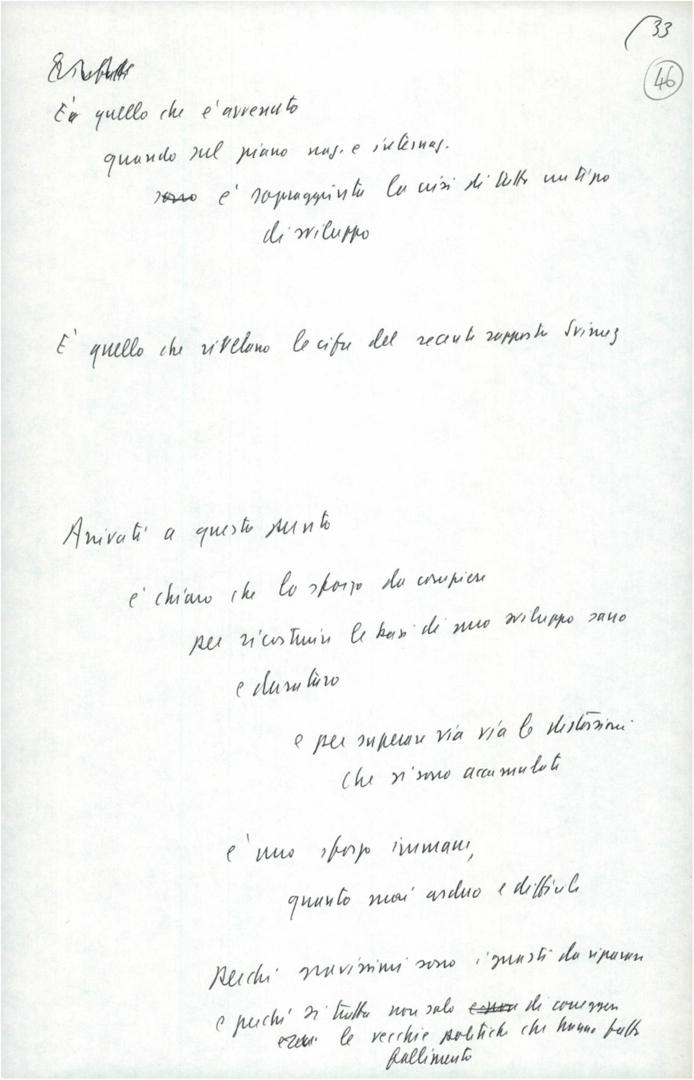 33
46
E' quello che è avvenuto
quando sul piano naz. e internaz.
sono è sopraggiunta la crisi di tutto un tipo
di sviluppo
E' quello che rivelano le cifre del recente rapporto Svimez
Arrivati a questo punto
è chiaro che lo sforzo da compiere
per ricostruire le basi di uno sviluppo sano
e duraturo
e per superare via via le distorsioni
che si sono accumulate
è uno sforzo immane,
quanto mai arduo e difficile
perché gravissimi sono i guasti da riparare
e perché si tratta non solo di correggere
le vecchie politiche che hanno fatto
fallimento